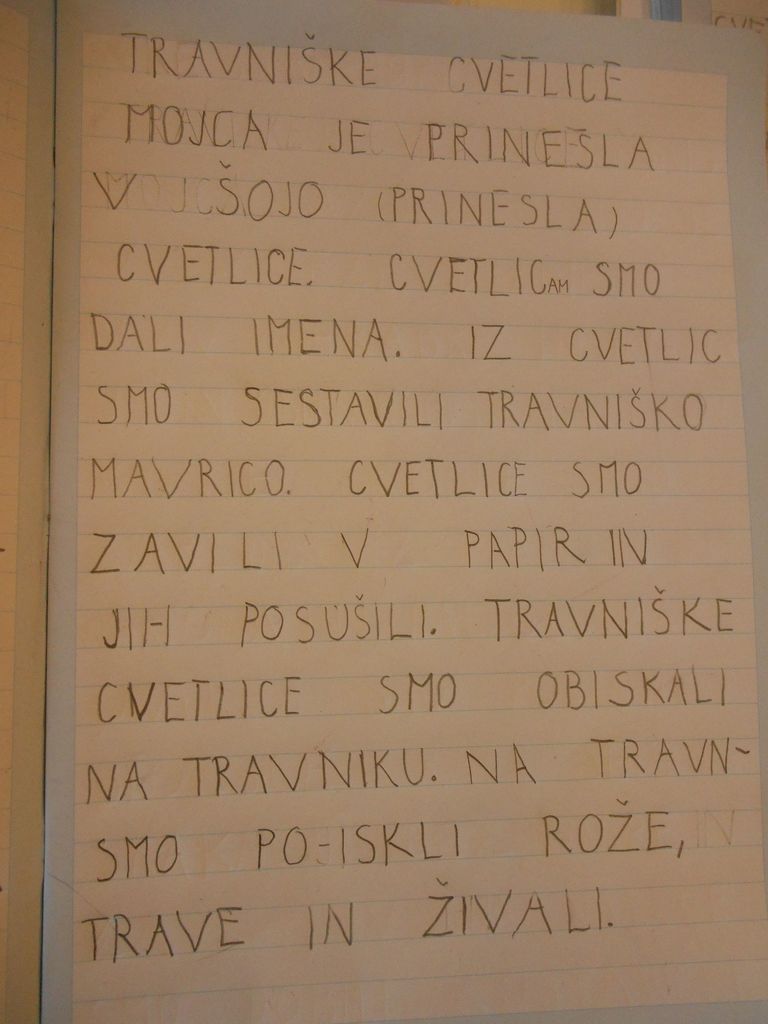 TRAVNIŠKE CVETLICE
MOJCA JE PRINESLA
V ŠOJO (PRINESLA)
CVETLICE. CVETLICAM SMO
DALI IMENA. IZ CVETLIC
SMO SESTAVILI TRAVNIŠKO
MAVRICO. CVETLICE SMO
ZAVILI V PAPIR IN
JIH POSUŠILI. TRAVNIŠKE
CVETLICE SMO OBISKALI
NA TRAVNIKU. NA TRAVN~
SMO PO-ISKLI ROŽE,
TRAVE IN ŽIVALI.